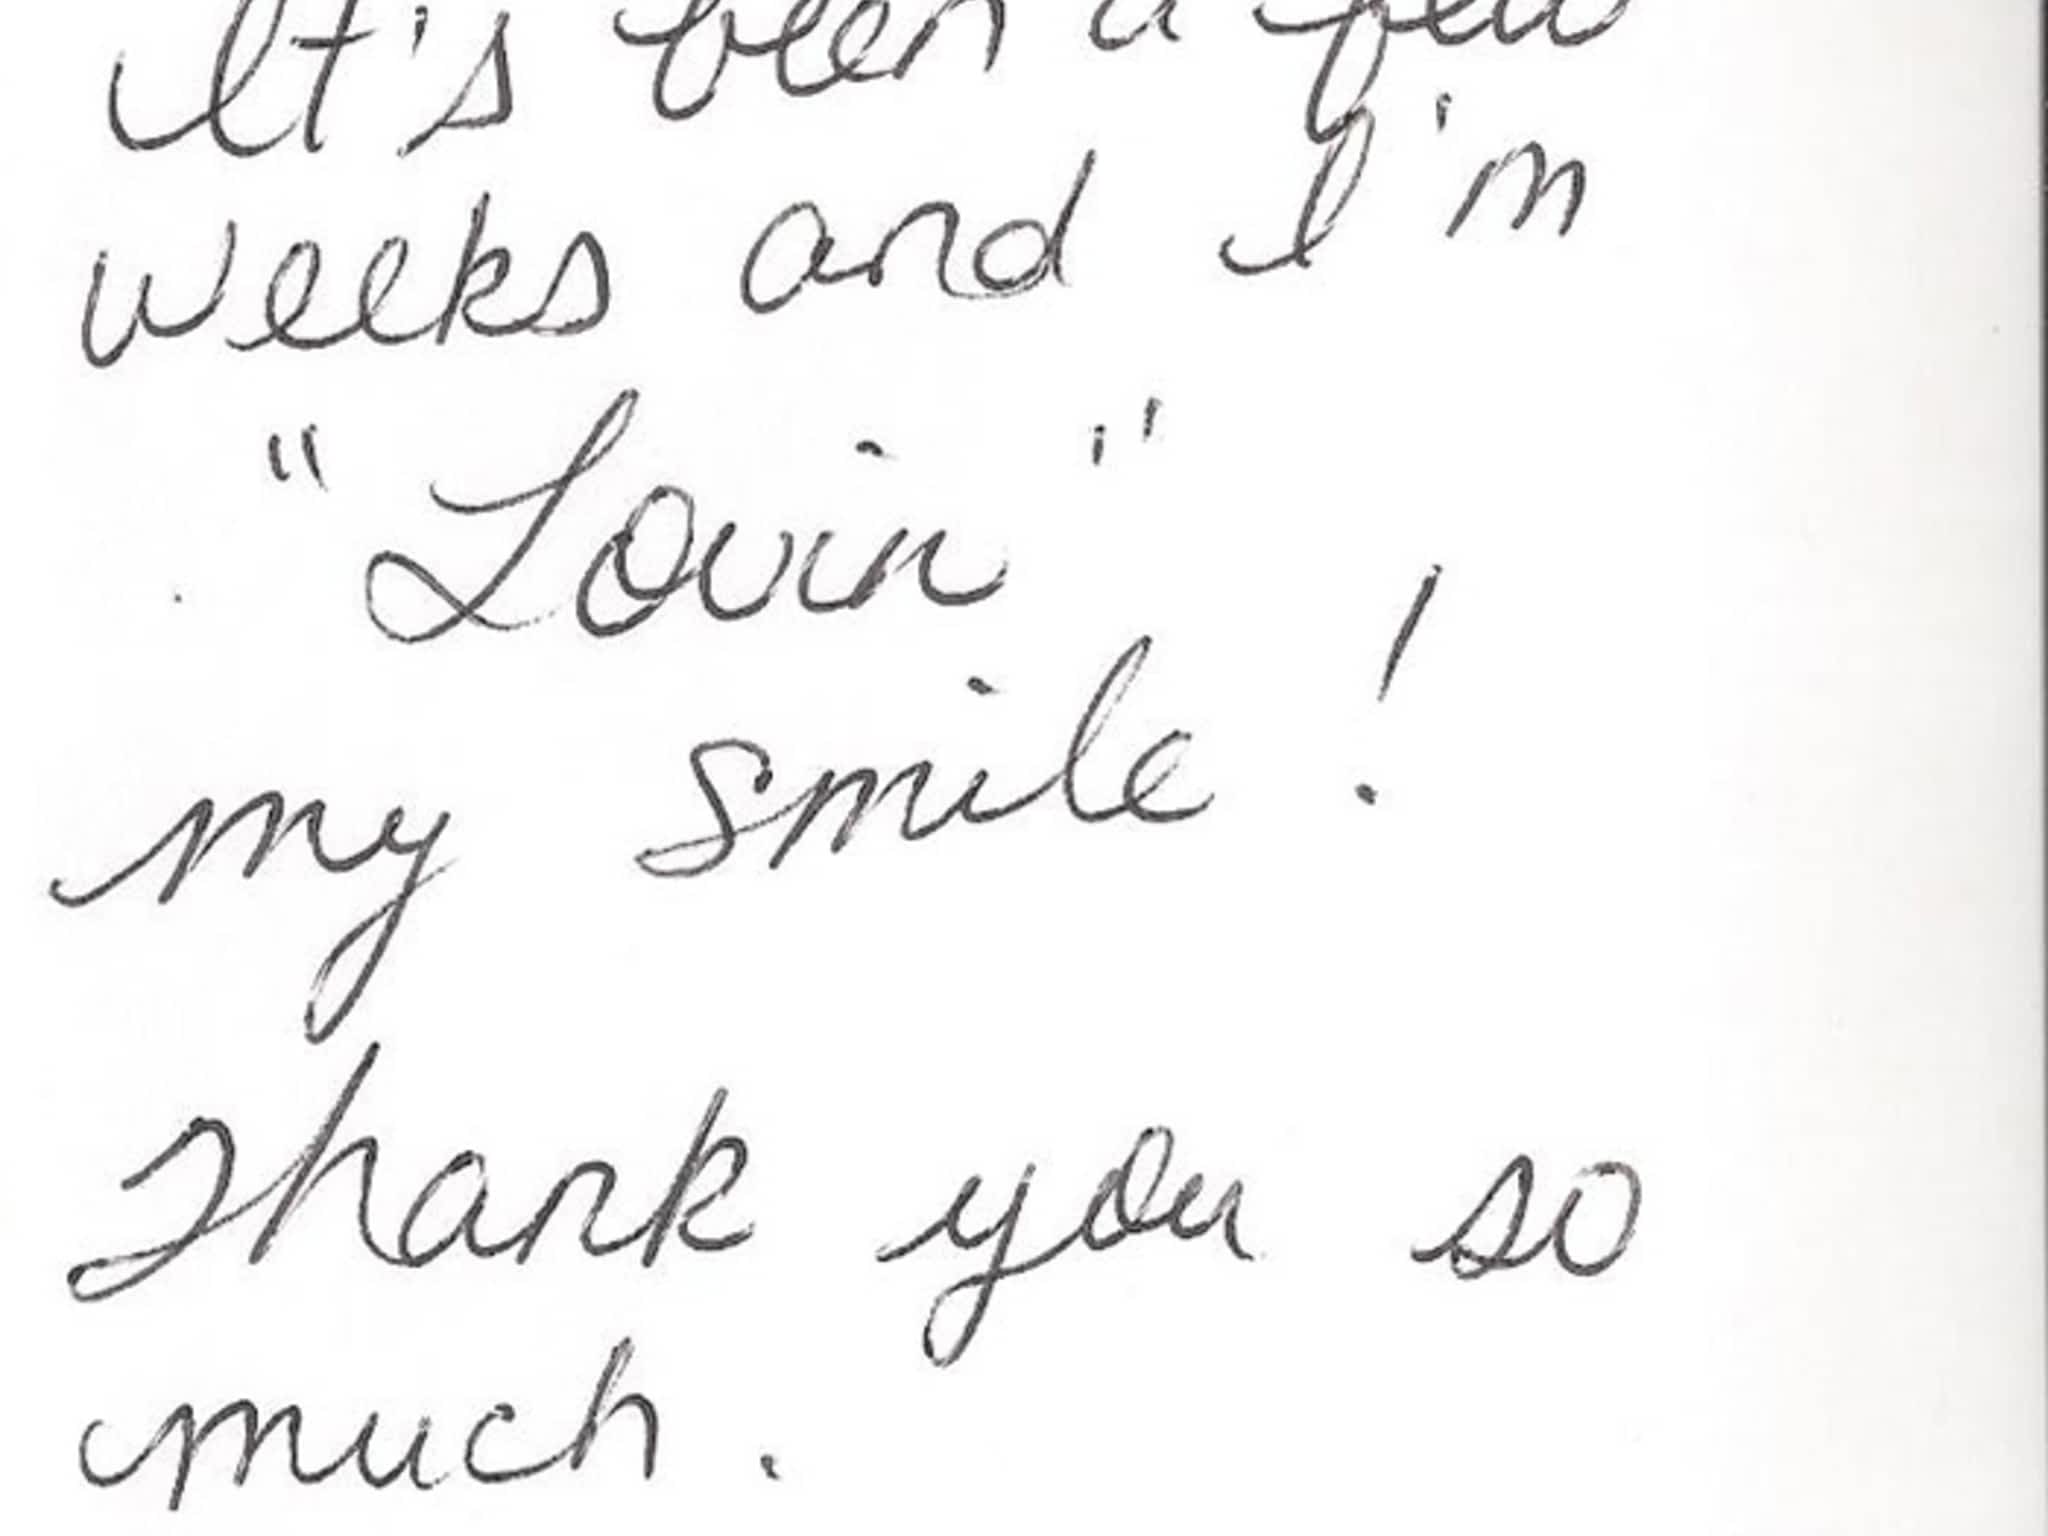 It's been a few
weeks and I'm
"Lovin"
my smile!
Thank you so
much.